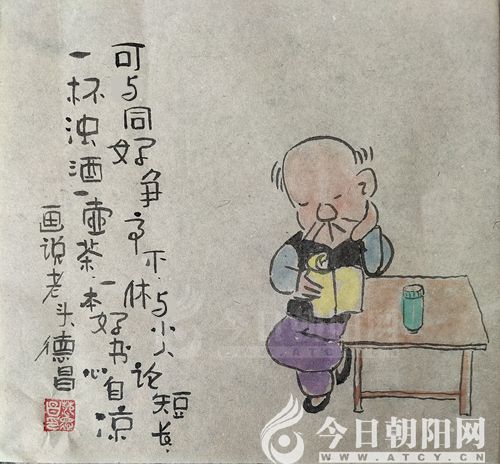 可与同好争高下休与小人论短长
一杯浊酒一壶茶一本好书心自凉
画说老头德昌
今日朝阳网
WWW.ATCY.CN